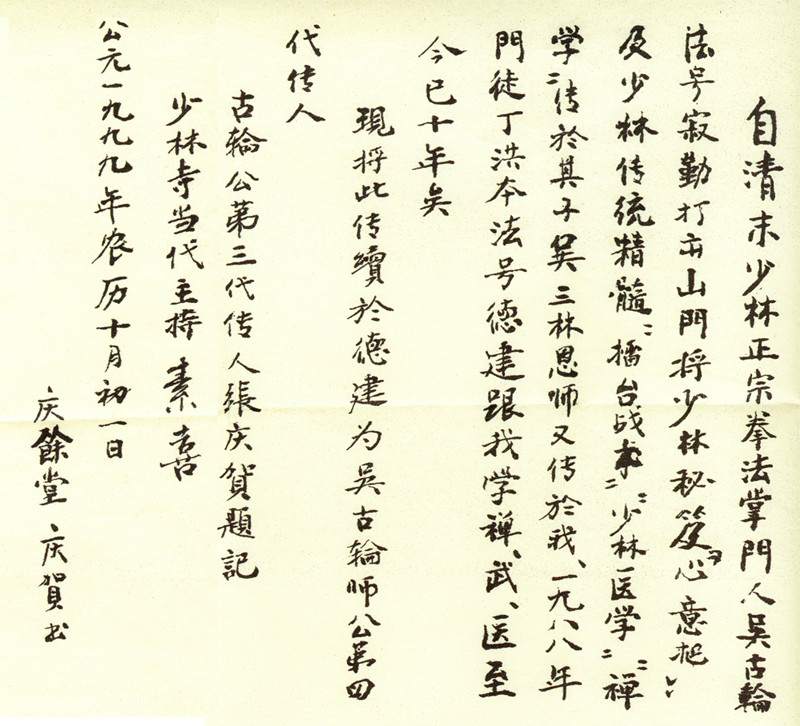 自清末少林正宗拳法掌門人吴古輪
法号寂勤打出山門将少林秘笈"心意把"
及少林传统精髓"擂台战术""少林医学""禪
学"传於其子吴三林恩师又传於我、一九八八年
門徒丁洪本法号德建跟我学禅、武、医至
今已十年矣
現将此传續於德建为吴古輪师公第四
代传人
古輪公第三代传人張庆贺題記
少林寺当代主持 素喜
公元一九九九年农历十月初一日
庆餘堂 庆賀书